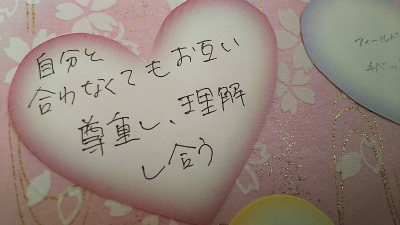 自分と
合わなくてもお互い
尊重し、理解
し合う
フィールド